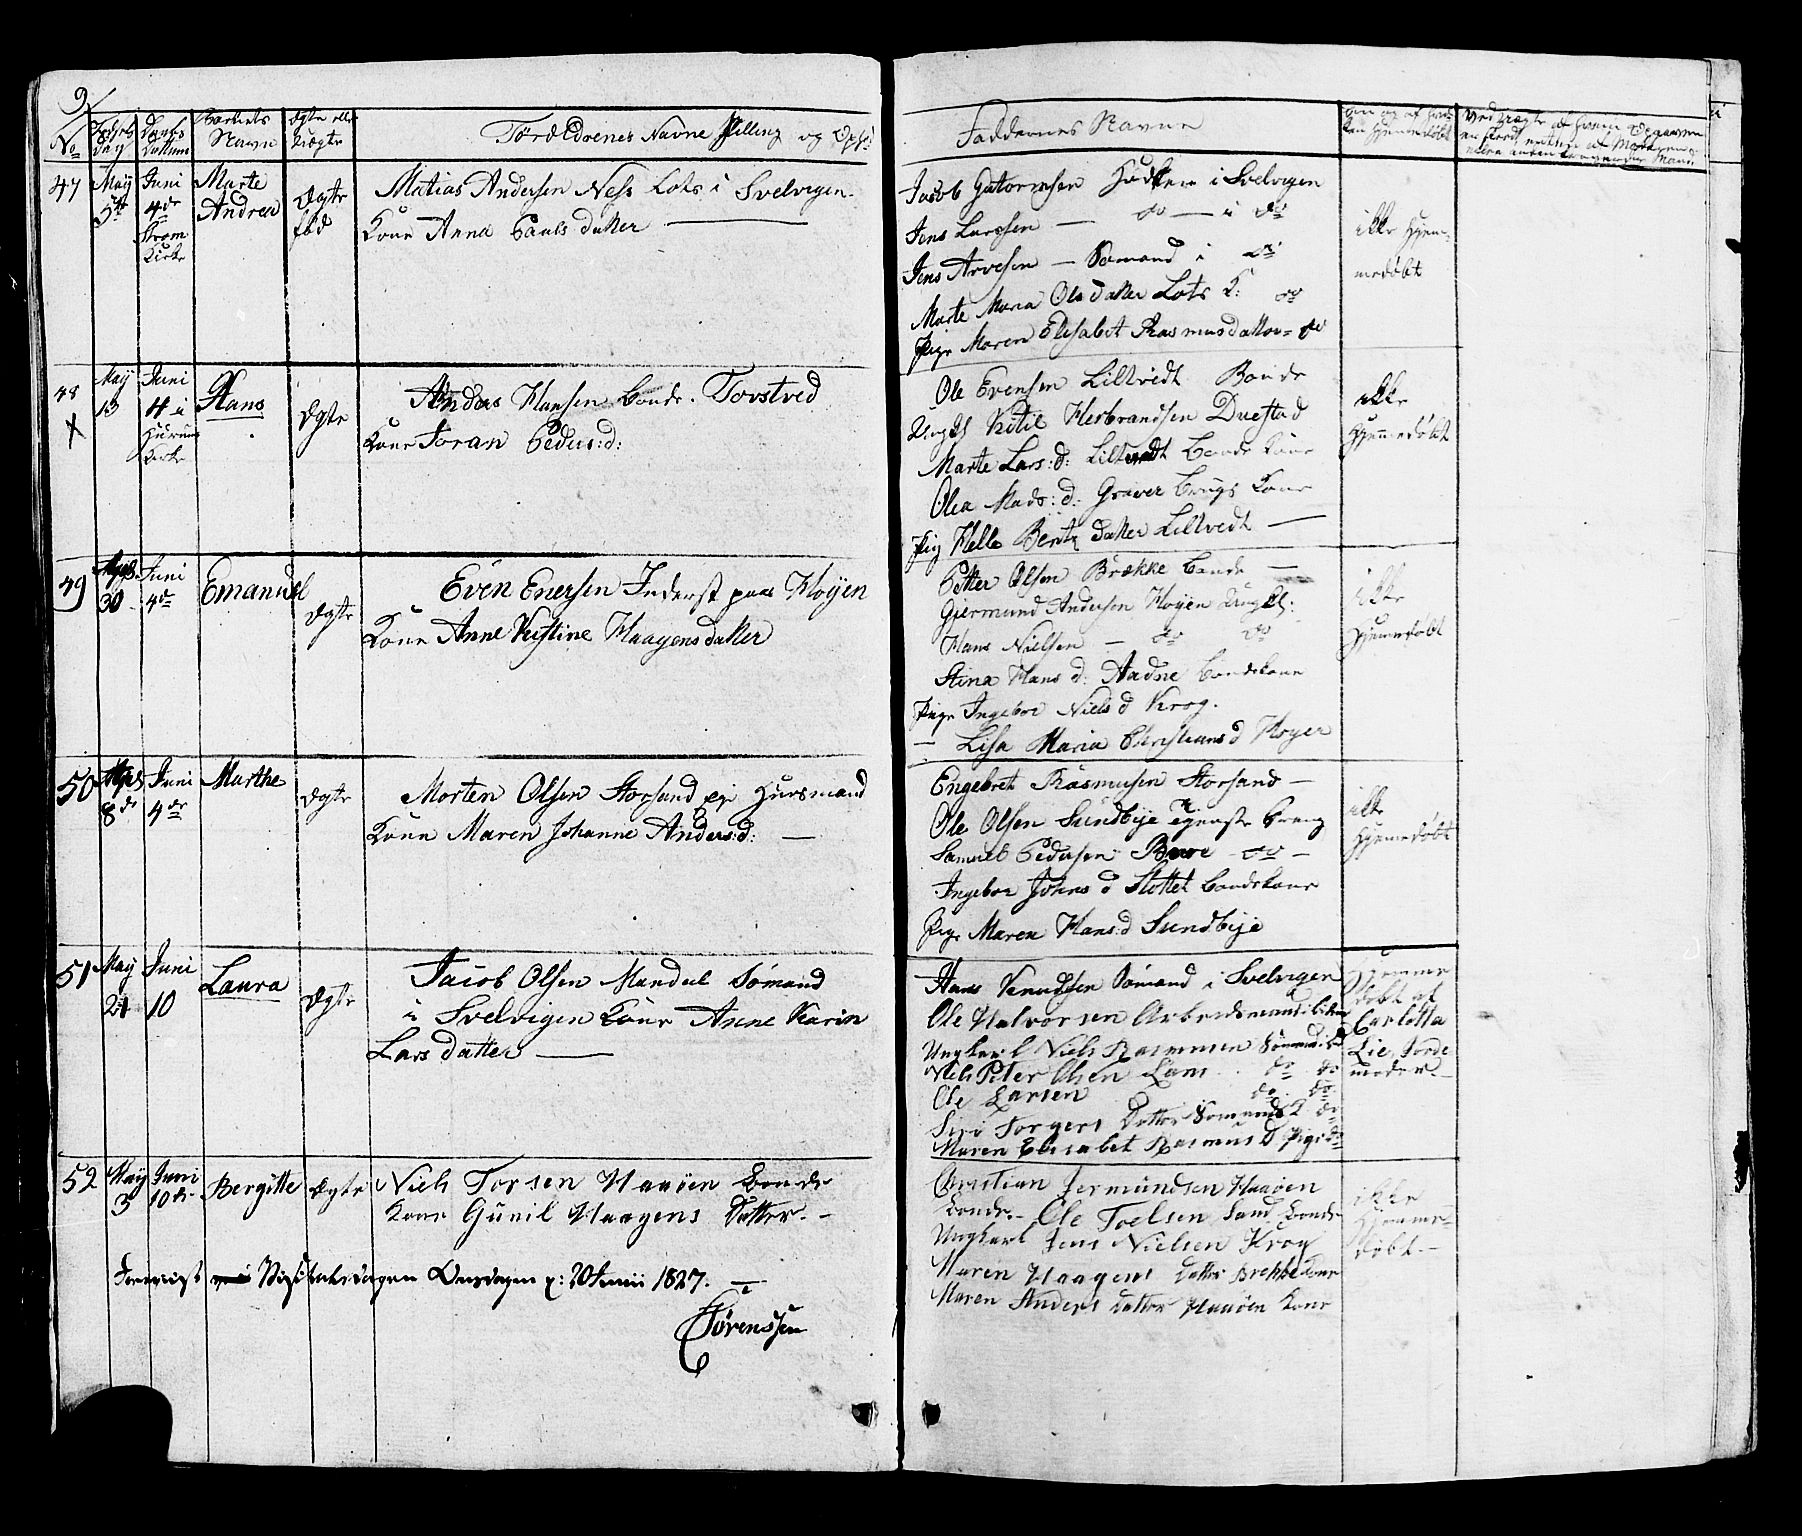 9
No
Barnets
Navn
Forældrenes Navne Stilling og
Faddernes Navne
47
May
5te
Juni
4de
Strøm
Kirke
Marte
Andrea
Ægte
fød
Matias Andersen Ness Lots i Svelvigen
Kone Anna Pauls datter
Jacob Gutormsen i Svelvigen
Jens Larssen — do — i do
Jens Arvesen — Sømand i do
Marte Maria Ole datter Lots K: do
Pige Maren Elisabet Rasmusdatter do
ikke Hjem-
medøbt
48
X
May
13
Juni
4 i
Hurum
Kirke
Hans
Ægte
Anders Hansen Bonde Tovstved
Kone Joran Peders:d:
Ole Evensen Liltvedt Bonde
Ketil Herbrandsen Duestad
Marte Lars:d: Liltvedt Bonde Kone
Olea Mads:d: Graver Kone
Pig Helle Bentz datter Liltvedt —
ikke
Hjemmedøbt
49
30
Juni
4de
Emanuel
Ægte
Even Enersen Inderst paa Høyen
Kone Anne Kirstine Haagensdatter
Petter Olsen Brække Bonde —
Gjermund Andersen Høyen Ungkl:
Hans Nielsen — do do
Stina Hans d: Aadne Bondekone
Pige Ingebor Niels d Krog.
— Lisa Maria Christians d Høyer
ikke
Hjemmedøbt
50
8de
Juni
4de
Marthe
Ægte
Morten Olsen Storsand eje Huusmand
Kone Maren Johanne Anders:d: —
Engebret Rasmusen Storsand —
Ole Olsen Sundbye
Samuel Pedersen — do —
Ingebor Johns d Slottet Bondekone
Pige Maren Hans:d Sundbye
ikke
Hjemmedøbt
51
May
21
Juni
10
Laura
Ægte
Jacob Olsen Mandal Sømand
i Svelvigen Kone Anne Karin
Lars datter —
Hans Knudsen Sømand i Svelvigen
Ole Halvorsen Arbeidsmand
Ungkarl Niels Rasmusen Sømand
Niels Peter Olsen do do
Ole Larsen do do
Siri Torgers Datter Sømands K do
Maren Elisabet Rasmus D Pige do
Hjemme
døbt af
Carlotta
Lie, Jorde
moder.—
52
May
3
Juni
10de
Bergitte
Ægte
Niels Torsen Haaøen Bonde
Kone Gunil Haagens Datter.—
Christian Jermundsen Haaøen
Bonde— Ole Toelsen Sand Bonde
Ungkarl Jens Nielsen Krog
Maren Haagens Datter Brekke Kone
Maren Anders Datter Haaøen Kone
ikke
Hjemme-
døbt.—
Foreviist Visitatsdagen Onsdagen d: 20 Junii 1827.
Sørenssen